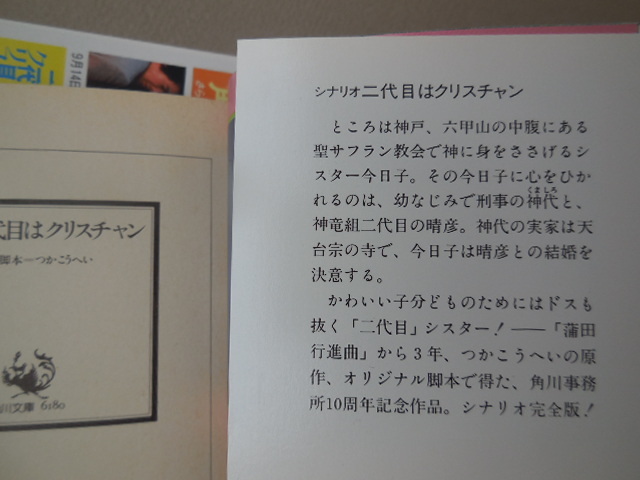 シナリオ二代目はクリスチャン
ところは神戸、六甲山の中腹にある
聖サフラン教会で神に身をささげるシ
スター今日子。その今日子に心をひか
れるのは、幼なじみで刑事の神代と、
くましろ
神竜組二代目の晴彦。神代の実家は天
台宗の寺で、今日子は晴彦との結婚を
決意する。
かわいい子分どものためにはドスも
抜く「二代目」シスター!――「蒲田
行進曲」から3年、つかこうへいの原
作、オリジナル脚本で得た、角川事務
所10周年記念作品。シナリオ完全版!
代目はクリスチャン
脚本=つかこうへい
川文庫 6180
9月14日